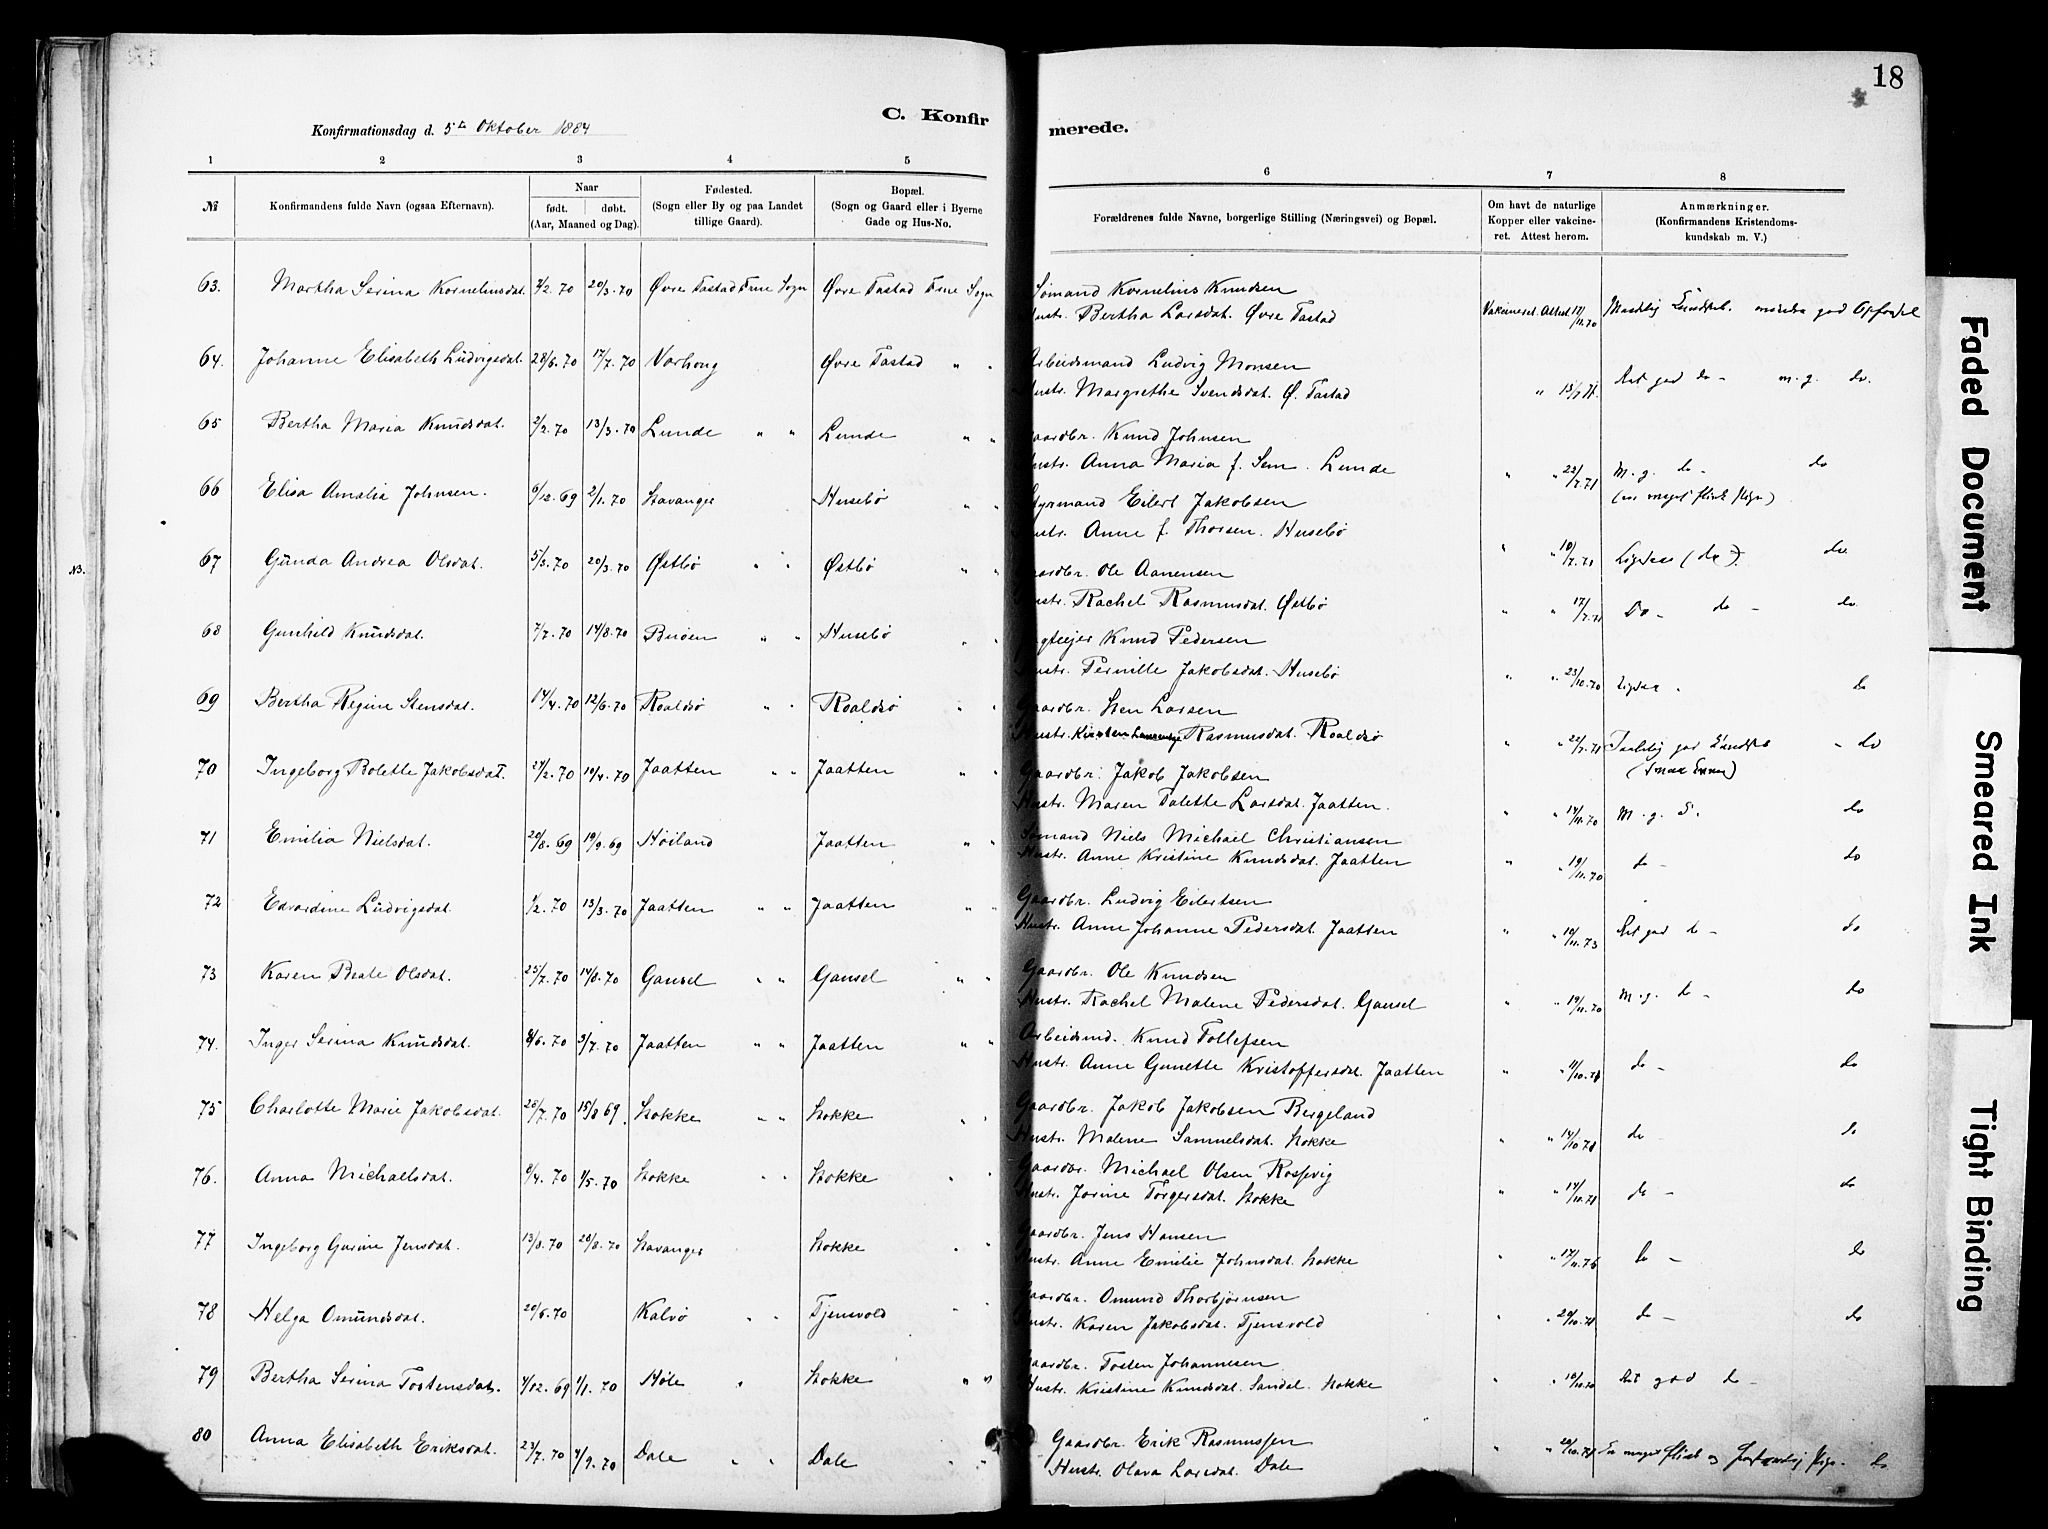 18
Konfirmationsdag d. 5te Oktober 1884
C. Konfir
merede.
1 2 3 4 5 6 7 8
№
Konfirmandens fulde Navn (ogsaa Efternavn).
Naar
født. døbt.
(Aar, Maaned og Dag).
Fødested.
(Sogn eller By og paa Landet
tillige Gaard).
Bopæl.
(Sogn og Gaard eller i Byerne
Gade og Hus-No.
Forældrenes fulde Navne, borgerlige Stilling (Næringsvei) og Bopæl.
Om havt de naturlige
Kopper eller vakcine-
ret. Attest herom.
Anmærkninger.
(Konfirmandens Kristendoms-
kundskab m. V.)
63. Martha Serina Kornelinsdat. 7/2.70 20/3.70 Øvre Tastad Frue Sogn Øvre Tastad Frue Sogn Sømand Kornelius Knudsen
Hustr. Bertha Larsdat. Øvre Tastad Vakcineret. Attest 17/11.70
64. Johanne Elisabeth Ludvigsdat. 28/6.70 17/7.70 Varhoug Øvre Tastad " " Arbeidsmand Ludvig Monsen
Hustr. Margrethe Svendsdat. Ø. Tastad " 15/7.71. Ret god do - m.g. do.
65 Bertha Maria Knudsdat. 2/2.70 13/3.70 Lunde " " Lunde " " Gaardbr. Knud Johnsen
Hustr. Anna Maria f. Sem. Lunde " " 22/7.71 M.g. do - do
66 Elisa Amalia Johnsen. 6/12.69 2/1.70 Stavanger Husebø " " Styrmand Eilert Jakobsen
Hustr. Anne f. Thorsen. Husebø " " 10/7.71
67 Gunda Andrea Olsdat. 5/3.70 20/3.70 Østbø " " Østbø " " Gaardbr. Ole Aanensen
Hustr. Rachel Rasmusdat. Østbø " " 17/7.71 Do - do - do
68 Gunhild Knudsdat. 7/7.70 14/8.70 Buøen " " Husebø " " Knud Pedersen
Hustr. Pernille Jakobsdat. Husebø " " 23/10.70 do
69 Bertha Regine Stensdat. 14/4.70 12/6.70 Roaldsø " " Roaldsø " " Gaardbr. Sten Larsen
Hustr. Kirsten Rasmusdat. Roaldsø " " 22/7.71 - do
70 Ingeborg Bolette Jakobsdat. 27/2.70 10/4.70 Jaatten " " Jaatten " " Gaardbr. Jakob Jakobsen
Hustr. Maren Talette Larsdat. Jaatten. " " 14/11.70 M.g. do
71 Emilia Nielsdat. 20/8.69 19/9.69 Høiland Jaatten " " Sømand Niels Michael Christiansen
Hustr. Anne Kristine Knudsdat. Jaatten " " 19/11.70 do - do
72 Edvardine Ludvigsdat. 1/2.70 13/3.70 Jaatten " " Jaatten " " Gaardbr. Ludvig Eilertsen
Hustr. Anne Johanne Pedersdat. Jaatten " " 19/11.73 Ret god do - do
73 Karen Beate Olsdat. 23/7.70 14/8.70 Gausel " " Gausel " " Gaardbr. Ole Knudsen
Hustr. Rachel Malene Pedersdat. Gausel " " 19/11.70 M.g. do - do
74. Inger Serina Knudsdat. 8/6.70 3/7.70 Jaatten " " Jaatten " " Arbeidsmd. Knud Tollefsen
Hustr. Anne Gunette Kristoffersdat. Jaatten " " 11/10.71 do - do
75 Charlotte Marie Jakobsdat. 28/7.70 15/8 69. Stokke " " Stokke " Gaardbr. Jakob Jakobsen Bergeland
Hustr. Malene Samuelsdat. Stokke " " 14/10.71 do - do
76. Anna Michaelsdat. 6/4.70 1/5.70 Stokke " " Stokke " " Gaardbr. Michael Olsen Rossevig
Hustr. Jorine Torgersdat. Stokke " " 14/10.71 do - do
77 Ingeborg Gurine Jensdat. 13/8.70 28/8.70 Stavanger Stokke " " Gaardbr. Jens Hansen
Hustr. Anne Emilie Johnsdat. Stokke " 17/11.76 do - do
78 Helga Omundsdat. 20/6.70 Kalvø " " Tjensvold " " Gaardbr. Omund Thorbjørnsen
Hustr. Karen Jakobsdat. Tjensvold " " 20/10.71 do - do
79 Bertha Serina Tostensdat. 4/12.69 1/1.70 Høle " Stokke " " Gaardbr. Tosten Johannesen
Hustr. Kristine Knudsdat. Sandal. Stokke " " 10/10.70 Ret god do -
80 Anna Elisabeth Eriksdat. 23/7.70 4/9.70 Dale " " Dale " " Gaardbr. Erik Rasmussen
Hustr. Olava Larsdat. Dale " " 20/10.71 do
N3.
Faded Document
Smeared Ink
Tight Binding